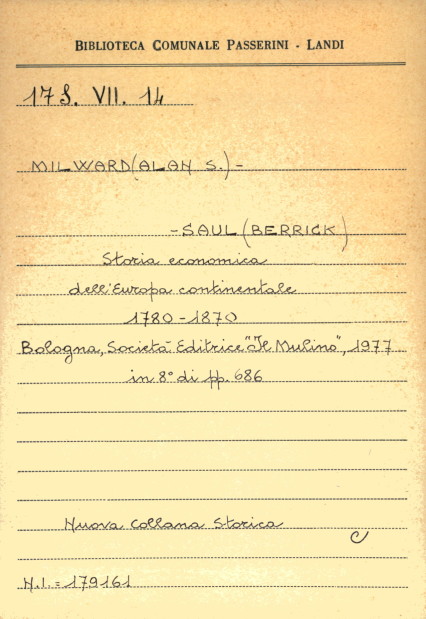 BIBLIOTECA COMUNALE PASSERINI - LANDI
17S. VII. 14
MILWARD (ALAN S.) -
- SAUL (BERRICK)
Storia economica
dell'Europa continentale
1780 - 1870
Bologna, Società Editrice "Il Mulino", 1977
in 8° di pp. 686
Nuova Collana Storica
C
N.I. = 179161